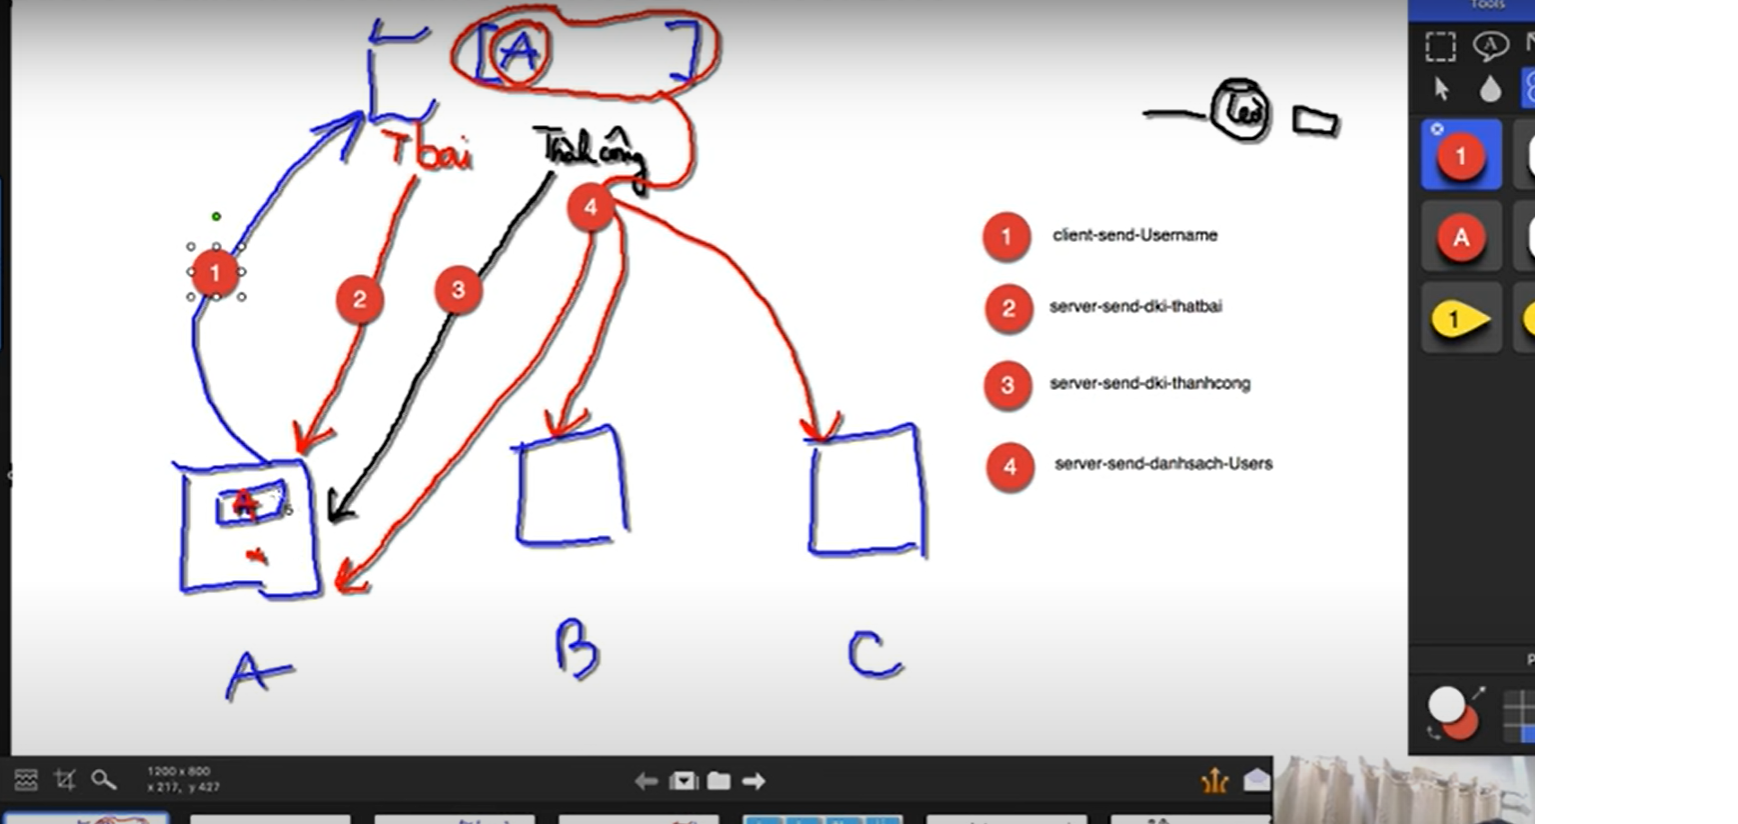 Tools
[A ]
Teo
T bai
Thành công
1
2
3
4
1 client-send-Username
2 server-send-dki-thatbai
3 server-send-dki-thanhcong
4 server-send-danhsach-Users
A
A
B
C
A
1
A
1
1200 x 800
x 217, y 427